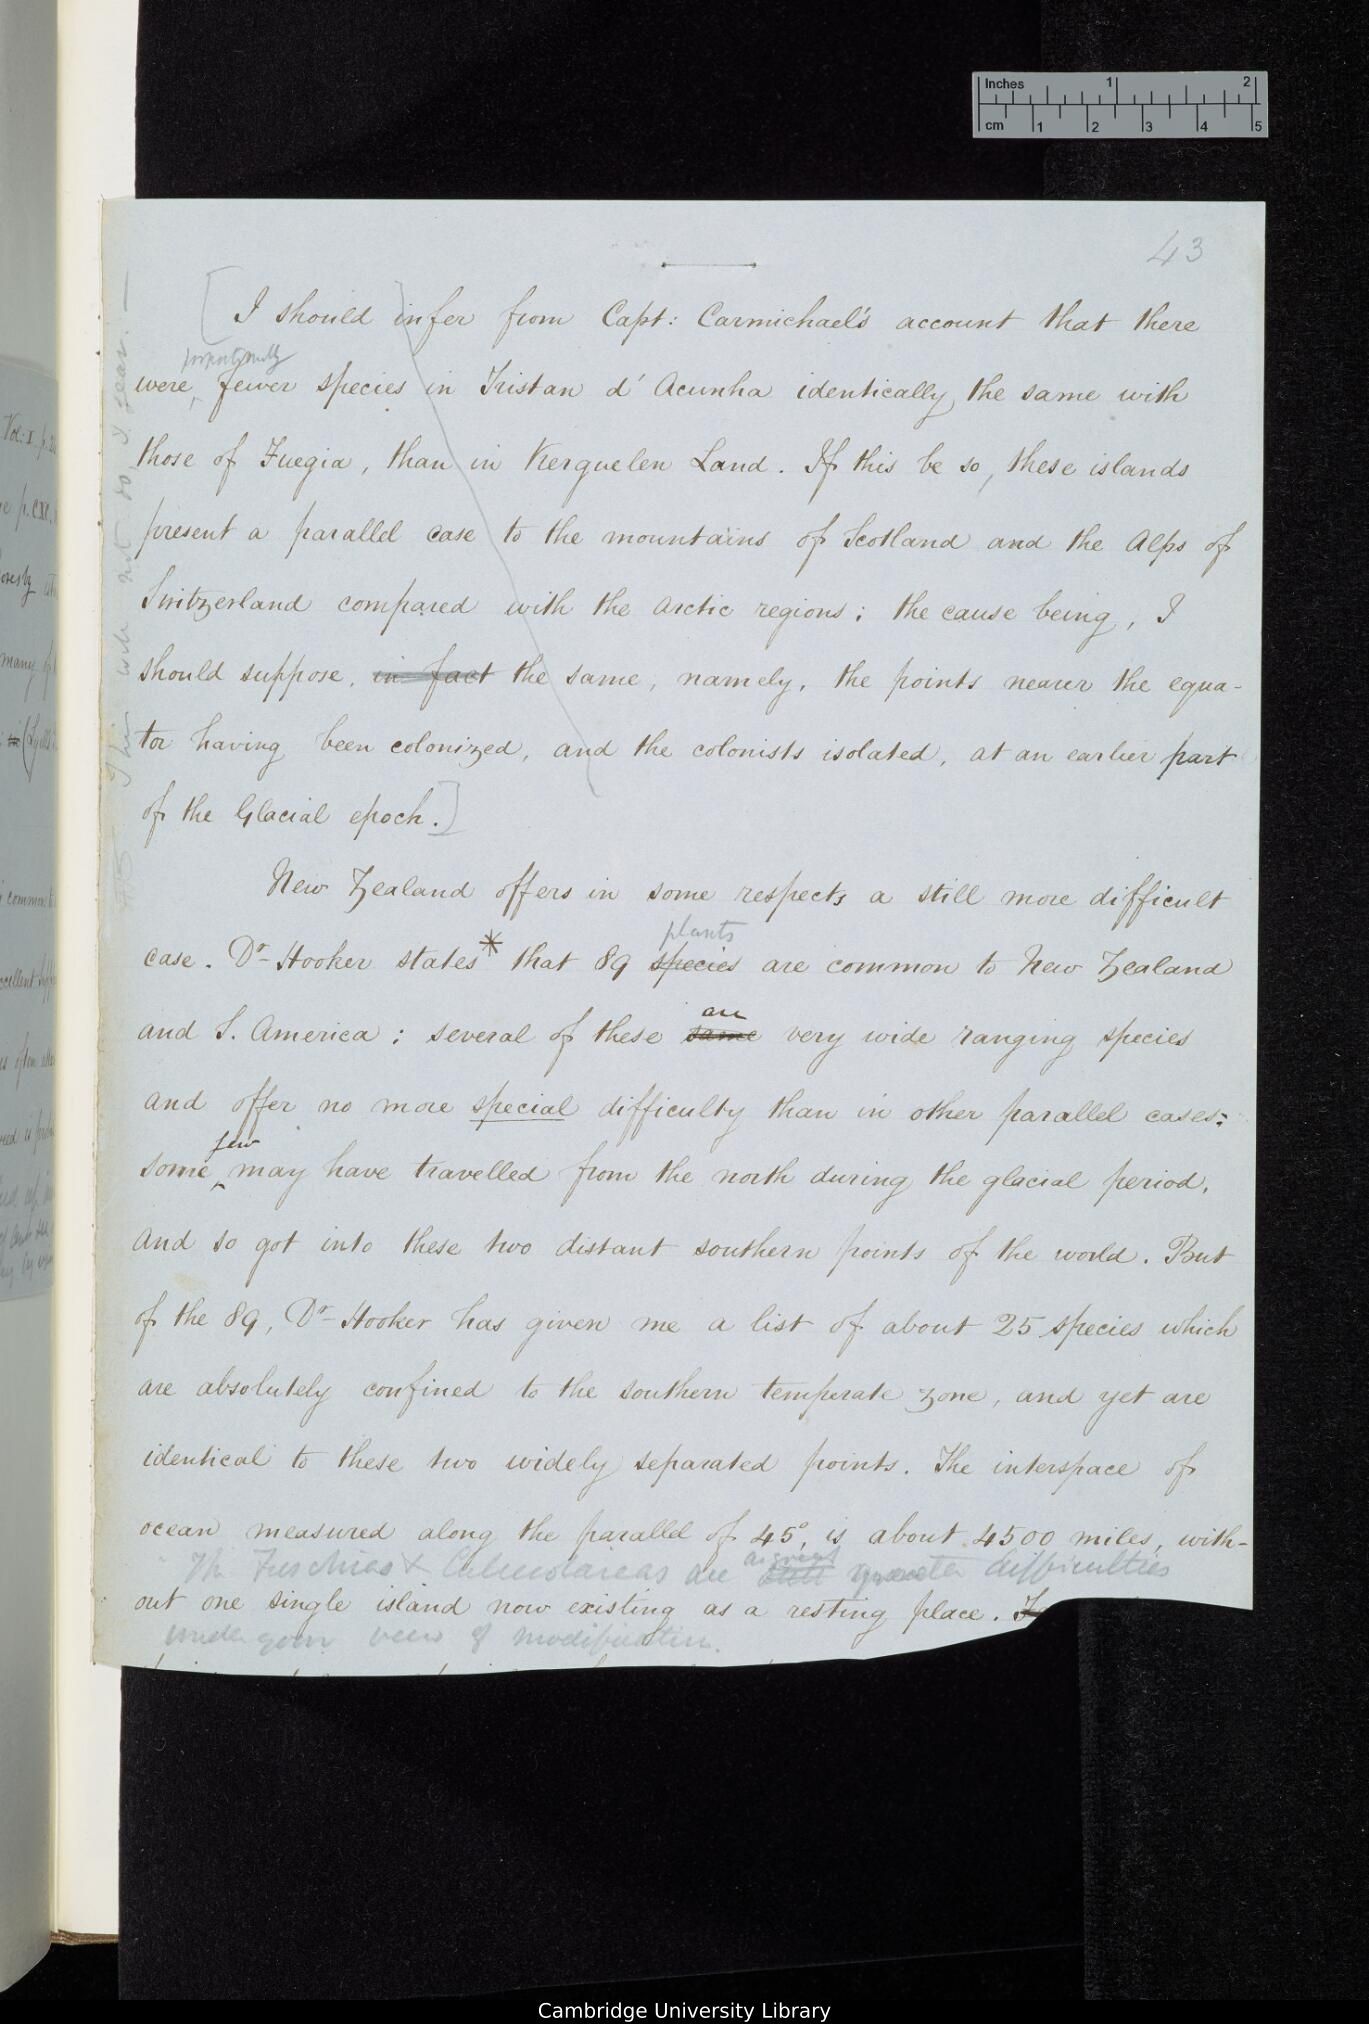 Inches 1 2
cm 1 2 3 4 5
43
[I should infer from Capt: Carmichael's account that there
proportionally
were, fewer species in Tristan d' Acunha identically the same with
those of Fuegia, than in Kerguelen Land. If this be so, these islands
present a parallel case to the mountains of Scotland and the Alps of
Switzerland compared with the arctic regions; the cause being, I
should suppose, in fact the same, namely, the points nearer the equa-
tor having been colonized, and the colonists isolated, at an earlier part
of the Glacial epoch.]
New Zealand offers in some respects a still more difficult
plants
case. Dr Hooker states* that 89 species are common to New Zealand
are
and S. America: several of these same very wide ranging species
and offer no more special difficulty than in other parallel cases:
few
some may have travelled from the north during the glacial period,
and so got into these two distant southern points of the world. But
of the 89, Dr Hooker has given me a list of about 25 species which
are absolutely confined to the southern temperate zone, and yet are
identical to these two widely separated points. The interspace of
ocean measured along the parallel of 45°, is about 4500 miles, with-
as great
The Fuschias & Calceolareas are still greater difficulties
out one single island now existing as a resting place.
under your view of modification.
This will not do I fear. —
Vol: I p.
many of
common
Cambridge University Library